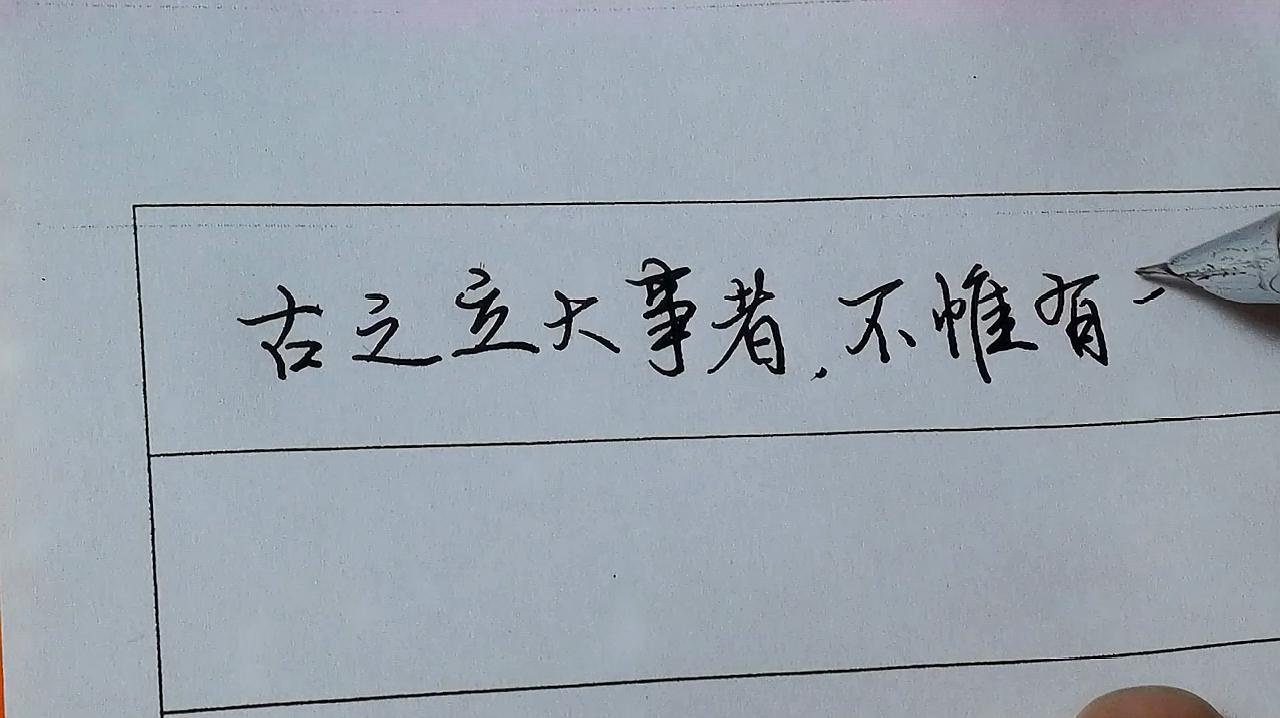 古之立大事者,不惟有